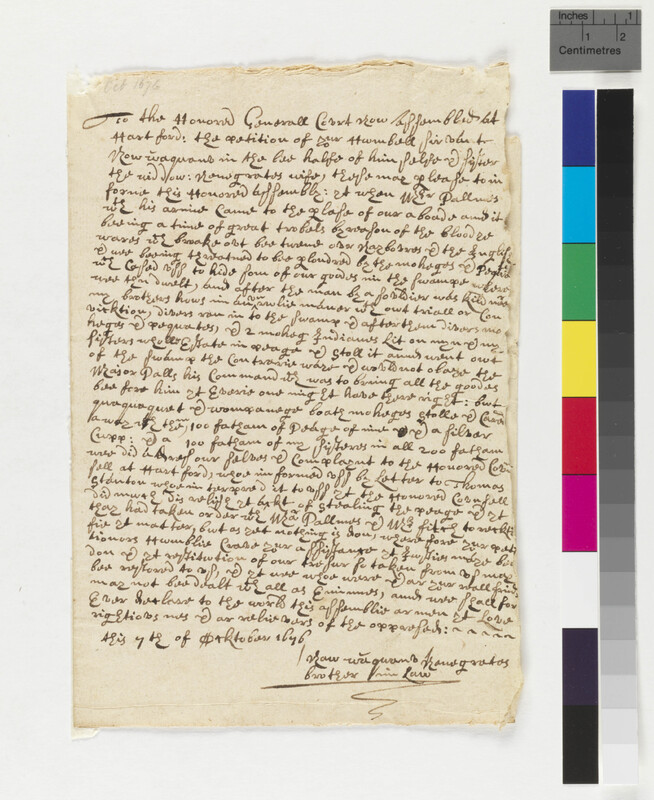 Oct 1676
To the Honored Generall Cort Now Assembled At
Hartford: the petition of your Humbell sirvante
Now waquanu in the bee halfe of him selfe & sister
the widdow: Nenegrates wife, these may please to in
forme this Honored Assembly: yt when Majr Pallmes
wth his armie Came to the plase of our a boade and it
beeing a time of great trobels by reason of the bloodye
wares wch broake out bee twene our Naybores & the English
& wee being threatned to bee plondred by the moheges & Pequits
wch Cased uss to hide som of our goodes in the swampe where
wee then dwelt, and after the man by a soldier was kild nere
my brothers hows in an unrulie maner wth owt triall or Con
vicktion, divers ran in to the swamp & after them divers mo
heges & pequates, & 2 moheg Indianes Lit on myn & my
sisters wholl Estate in peage & stoll it and went owt
of the swamp the Contrarie waye & would not obaye the
Major Palls his Command wch was to bring all the goodes
bee fore him yt Everie one might have there right: but
quaquaquet & wompanege boath moheges stolle & Caried
away wth them, 100 fatham of Peage of mine & a silver
Cupp: & a 100 fatham of my sisteres in all 200 fatham
wee did adres our selves & Complaynt to the Honored Coun
sell at Hartford, whoe informed uss by Letter to Thomas
Stanton whoe interpored it to uss yt the Honored Counsell
did much dis relish yt ackt of stealing the peage & yt
thay had taken order wth Majr Pallmes & Mr fitch to reckti
fie yt matter, but as yet nothing is don, where fore your peti
tionors Humblie Crave your assistance yt Justies maye bee
don & yt restitution of our tresur so taken from us may
bee restored to us, & yt wee whoe were & ar your reall frinds
may not bee dealt wth all as Enimies, and wee shall for
Ever declare to the world this assemblie ar men yt Love
rightiousnes & ar relievers of the oppresed:
this 7th of Ocktober 1676
Now waquanu Nenegrates
brother in Law
Inches 1
1 2
Centimetres